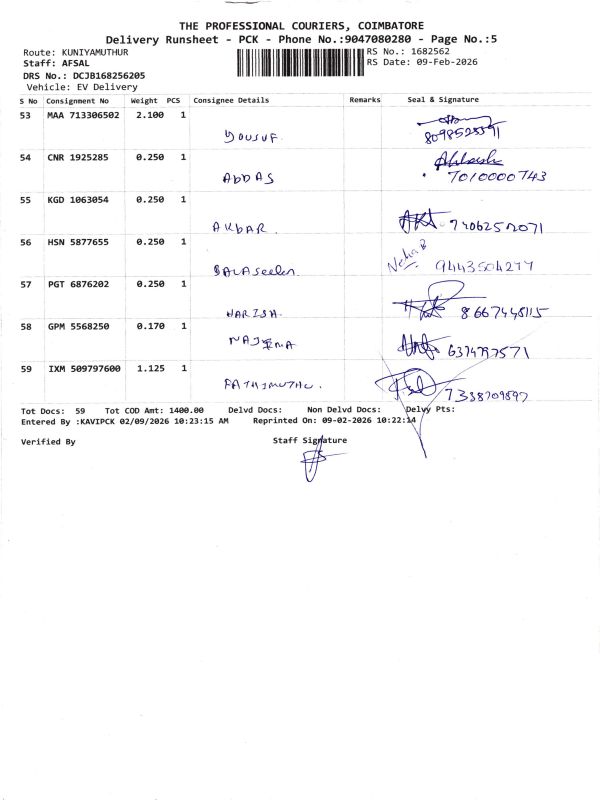 THE PROFESSIONAL COURIERS, COIMBATORE
Delivery Runsheet - PCK - Phone No.:9047080280 - Page No.:5
Route: KUNIYAMUTHUR RS No.: 1682562
Staff: AFSAL RS Date: 09-Feb-2026
DRS No.: DCJB168256205
Vehicle: EV Delivery
S No Consignment No Weight PCS Consignee Details Remarks Seal & Signature
53 MAA 713306502 2.100 1
YOUSUF.
54 CNR 1925285 0.250 1
Abbas 7010000743
55 KGD 1063054 0.250 1
AKbAR.
56 HSN 5877655 0.250 1
Neha B
9443504277
57 PGT 6876202 0.250 1
HARISH. 8667448115
58 GPM 5568250 0.170 1
59 IXM 509797600 1.125 1
FATHIMUTHU. 7338709897
Tot Docs: 59 Tot COD Amt: 1400.00 Delvd Docs: Non Delvd Docs: Delvy Pts:
Entered By :KAVIPCK 02/09/2026 10:23:15 AM Reprinted On: 09-02-2026 10:22:14
Verified By Staff Signature